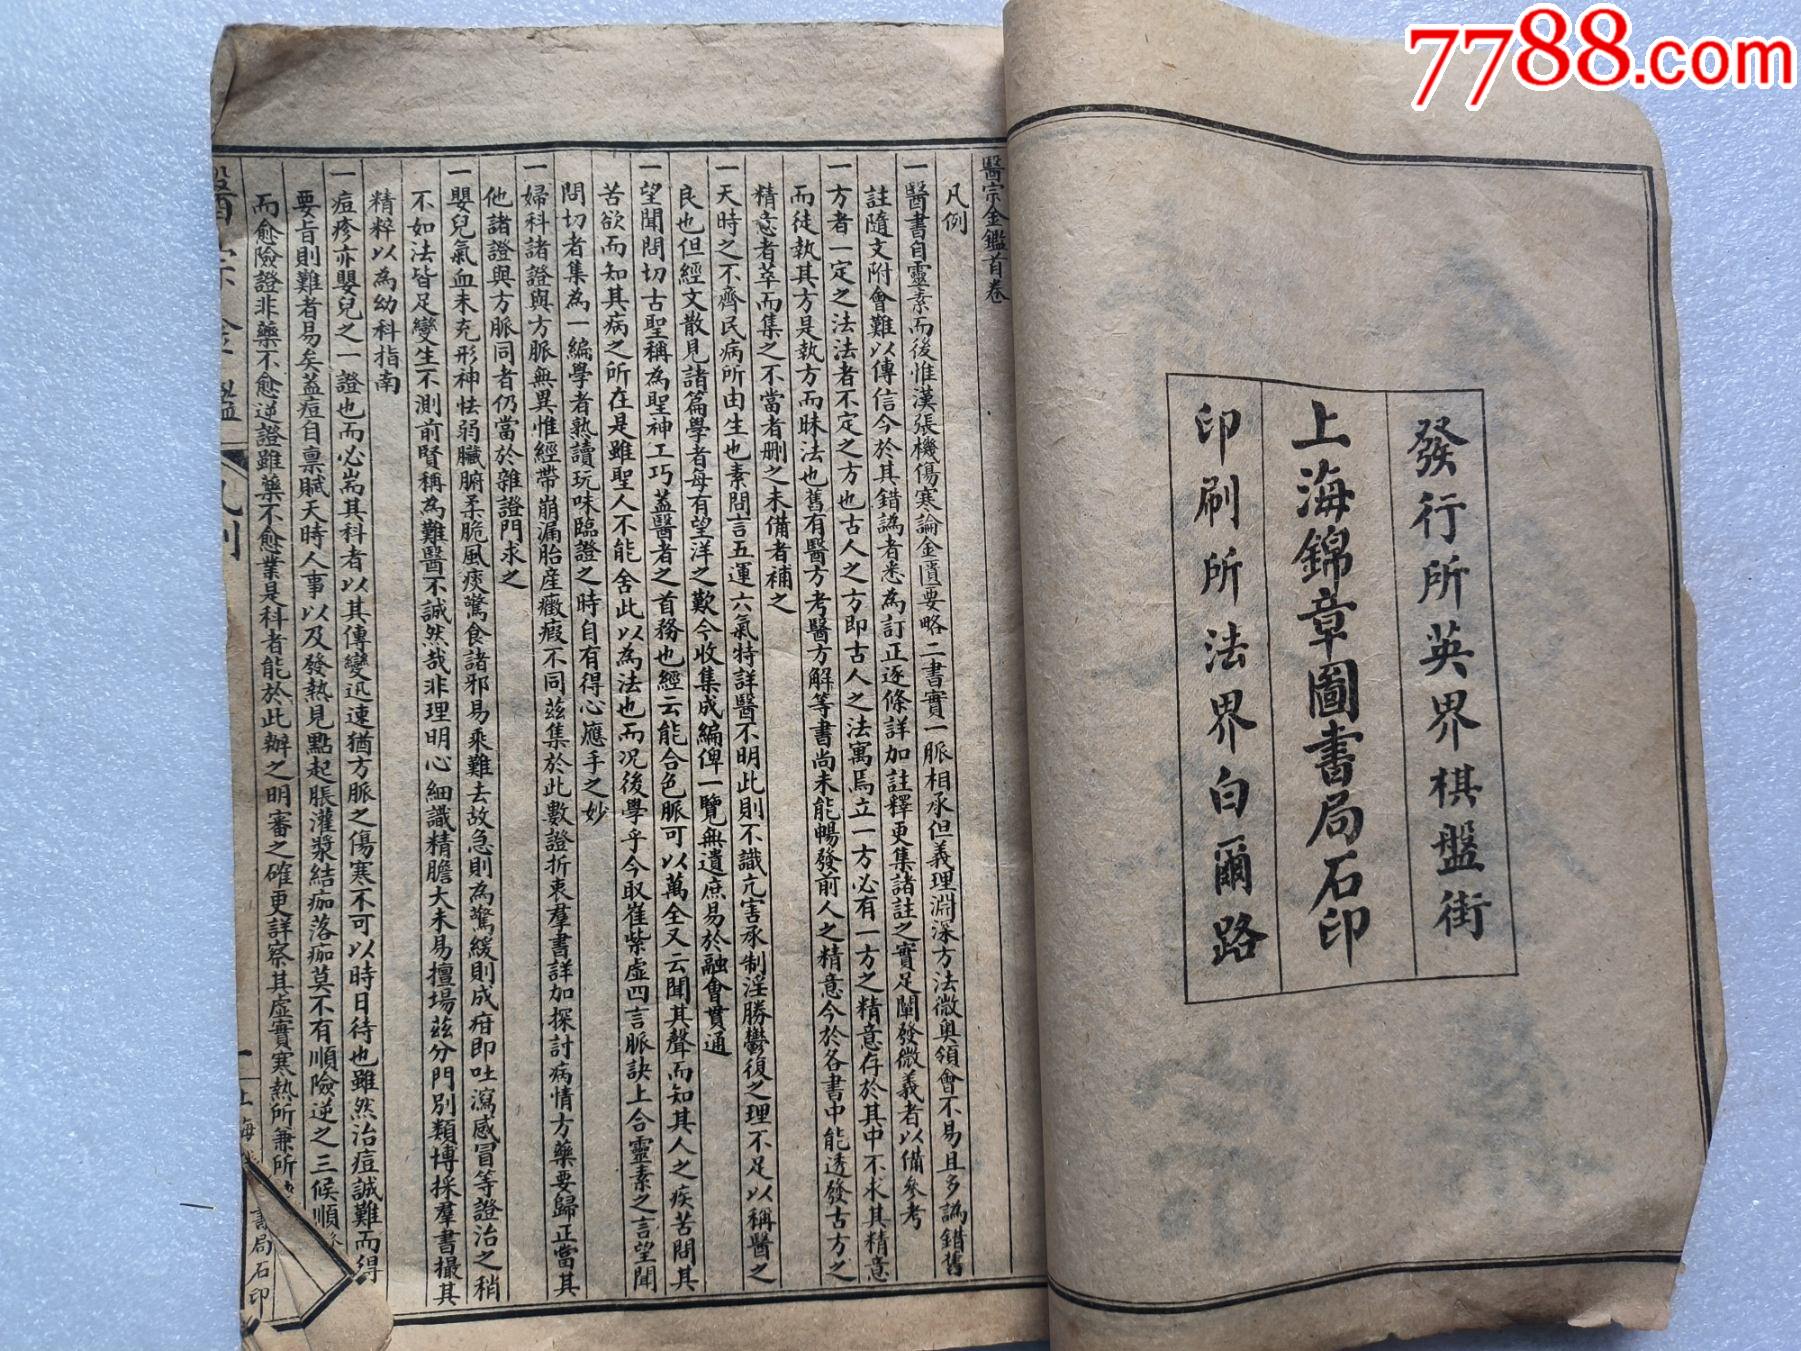 7788.com
發行所英界棋盤街
上海錦章圖書局石印
印刷所法界白爾路
醫宗金鑑首卷
凡例
一醫書自靈素而後惟漢張機傷寒論金匱要略二書實一脈相承但義理淵深方法微奧領會不易且多譌錯舊
註隨文附會難以傳信今於其錯譌者悉為訂正逐條詳加註釋更集諸註之實足闡發微義者以備參考
一方者一定之法法者不定之方也古人之方即古人之法寓焉立一方必有一方之精意存於其中不求其精意
而徒執其方是執方而昧法也舊有醫方考醫方解等書尚未能暢發前人之精意今於各書中能透發古方之
精意者萃而集之不當者刪之未備者補之
一天時之不齊民病所由生也素問言五運六氣特詳醫不明此則不識亢害承制淫勝鬱復之理不足以稱醫之
良也但經文散見諸篇學者每有望洋之歎今收集成編俾一覽無遺庶易於融會貫通
一望聞問切古聖稱為聖神工巧蓋醫者之首務也經云能合色脈可以萬全又云聞其聲而知其人之疾苦問其
苦欲而知其病之所在是雖聖人不能舍此以為法也而況後學乎今取崔紫虛四言脈訣上合靈素之言望聞
問切者集為一編學者熟讀玩味臨證之時自有得心應手之妙
一婦科諸證與方脈無異惟經帶崩漏胎產癥瘕不同茲集於此數證折衷羣書詳加探討病情方藥要歸正當其
他諸證與方脈同者仍當於雜證門求之
一嬰兒氣血未充形神怯弱臟腑柔脆風痰驚食諸邪易乘難去故急則為驚緩則成疳即吐瀉感冒等證治之稍
不如法皆足變生不測前賢稱為難醫不誠然哉非理明心細識精膽大未易擅場茲分門別類博採羣書撮其
精粹以為幼科指南
一痘疹亦嬰兒之一證也而必耑其科者以其傳變迅速猶方脈之傷寒不可以時日待也雖然治痘誠難而得
要旨則難者易矣蓋痘自稟賦天時人事以及發熱見點起脹灌漿結痂落痂莫不有順險逆之三候順
而愈險證非藥不愈逆證雖藥不愈業是科者能於此辦之明審之確更詳察其虛實寒熱所兼所
醫宗金鑑 凡例 一 上海 書局石印